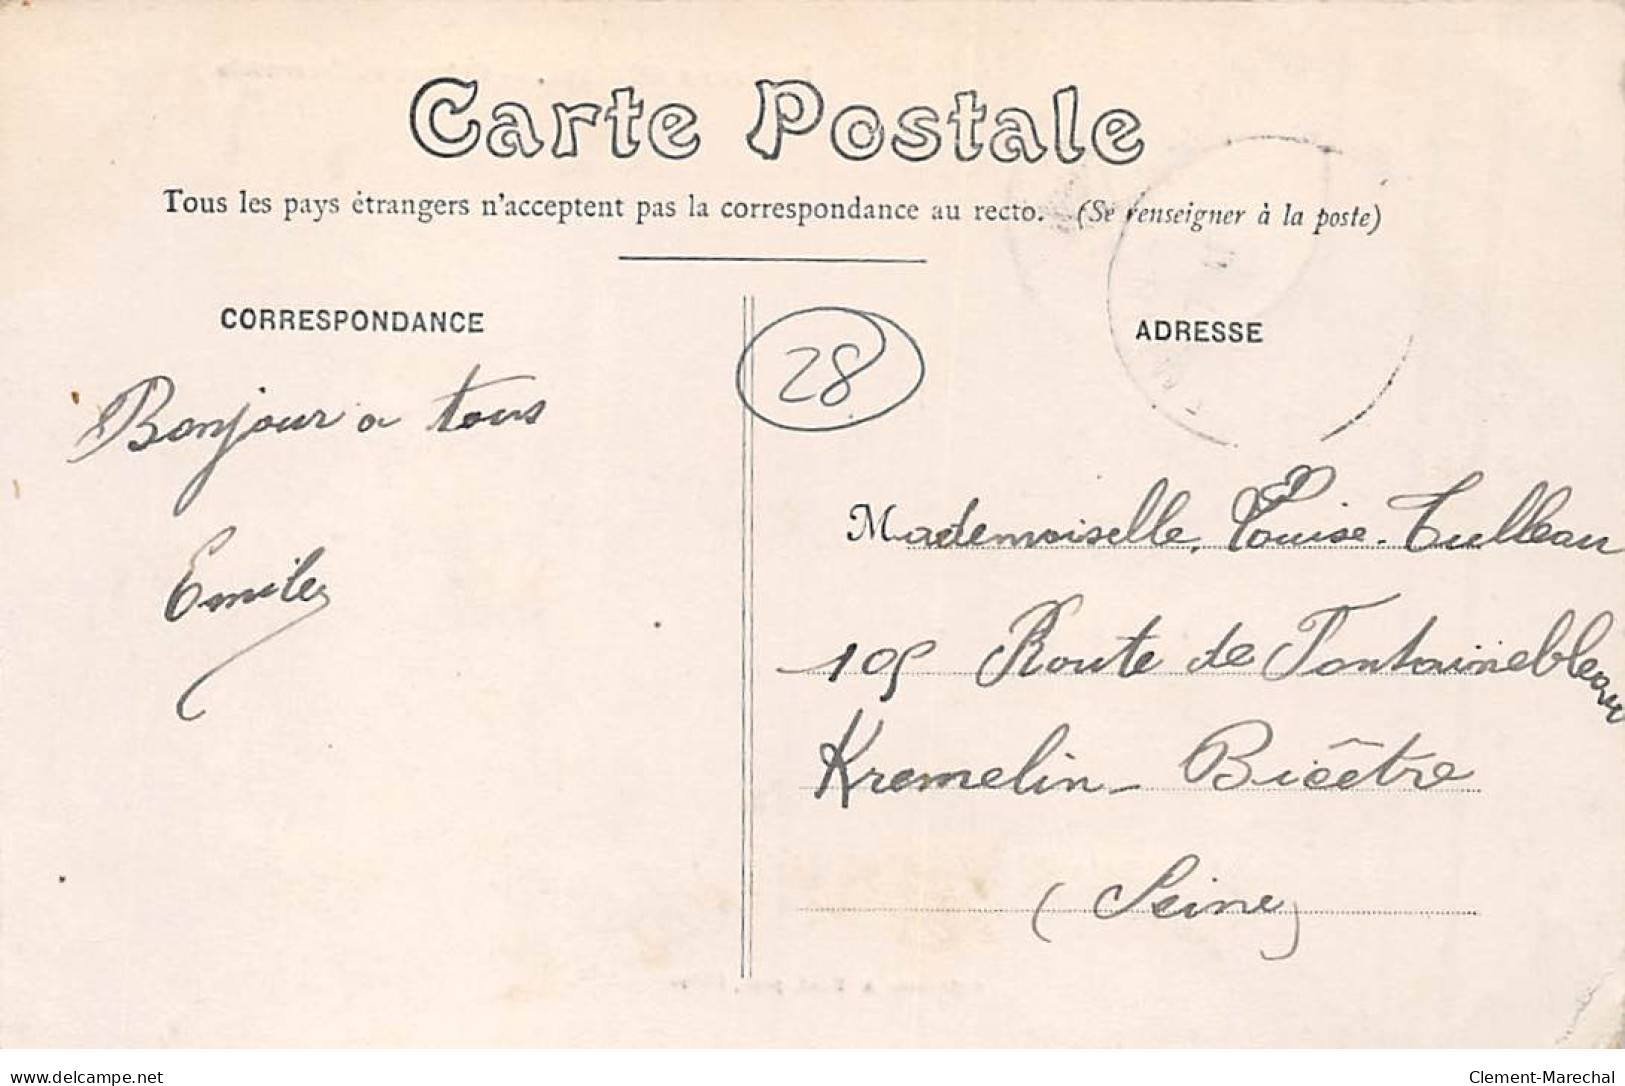 Carte Postale
Tous les pays étrangers n'acceptent pas la correspondance au recto. (Se renseigner à la poste)
CORRESPONDANCE
ADRESSE
28
Bonjour a tous
Emile
Mademoiselle Louise Tulleau
109 Route de Fontainebleau
Kremelin-Bicêtre
(Seine)
www.delcampe.net
Clement-Marechal